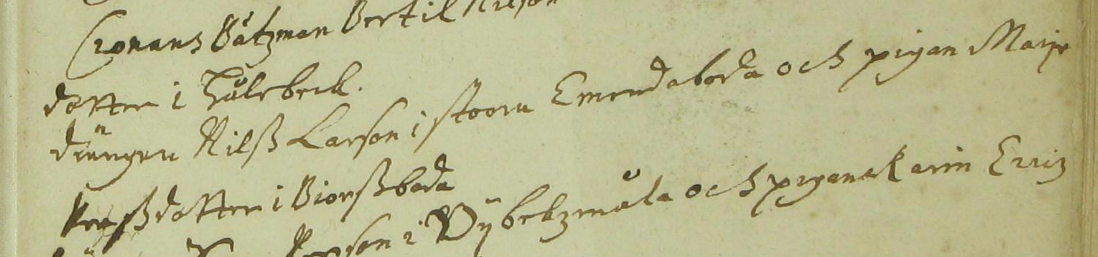 Cronans Båtzman Bertil Nilson
dotter i Hulebeck.
drängen Nilß Larson i stoora Emmedaboda och pigan Marje
Perßdotter i Biörßboda
son i Vÿbekzmåla och pigan Karin Erriz